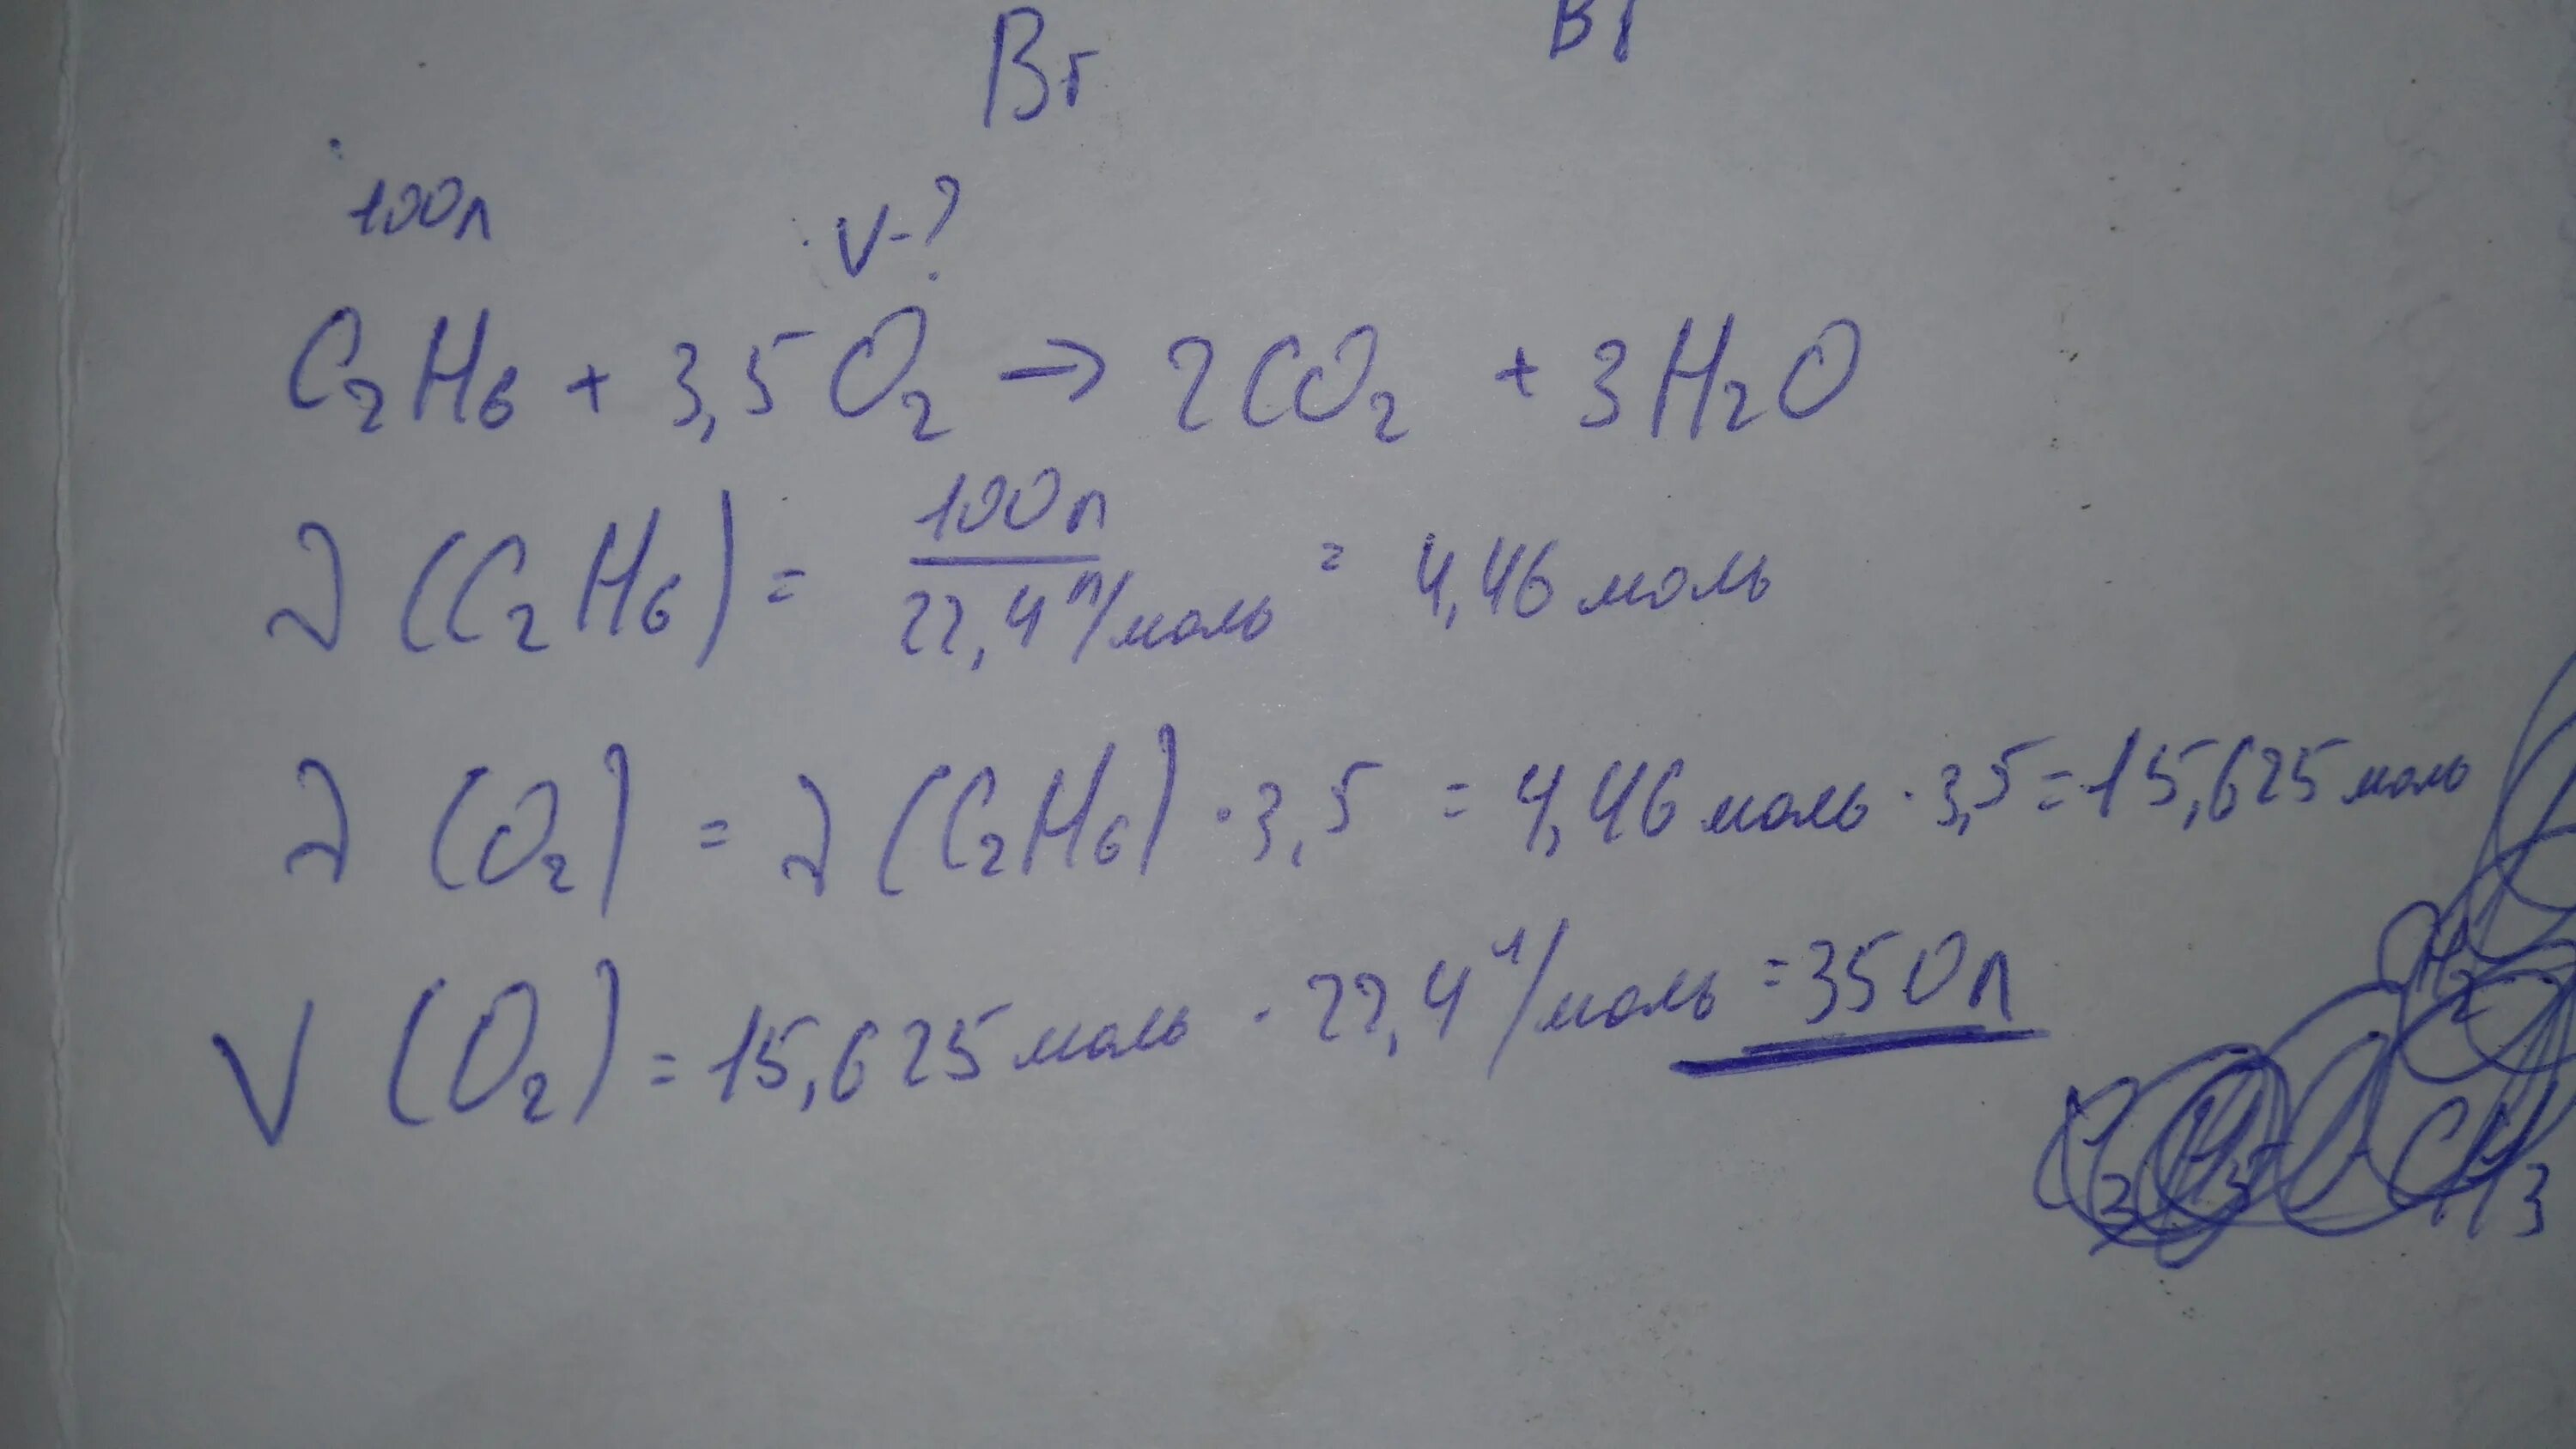 Br Br
100л V-?
C₂H₆ + 3,5 O₂ → 2CO₂ + 3H₂O
ν (C₂H₆) = 100л / 22,4 л/моль = 4,46 моль
ν (O₂) = ν (C₂H₆) · 3,5 = 4,46 моль · 3,5 = 15,625 моль
V (O₂) = 15,625 моль · 22,4 л/моль = 350л
CH₃